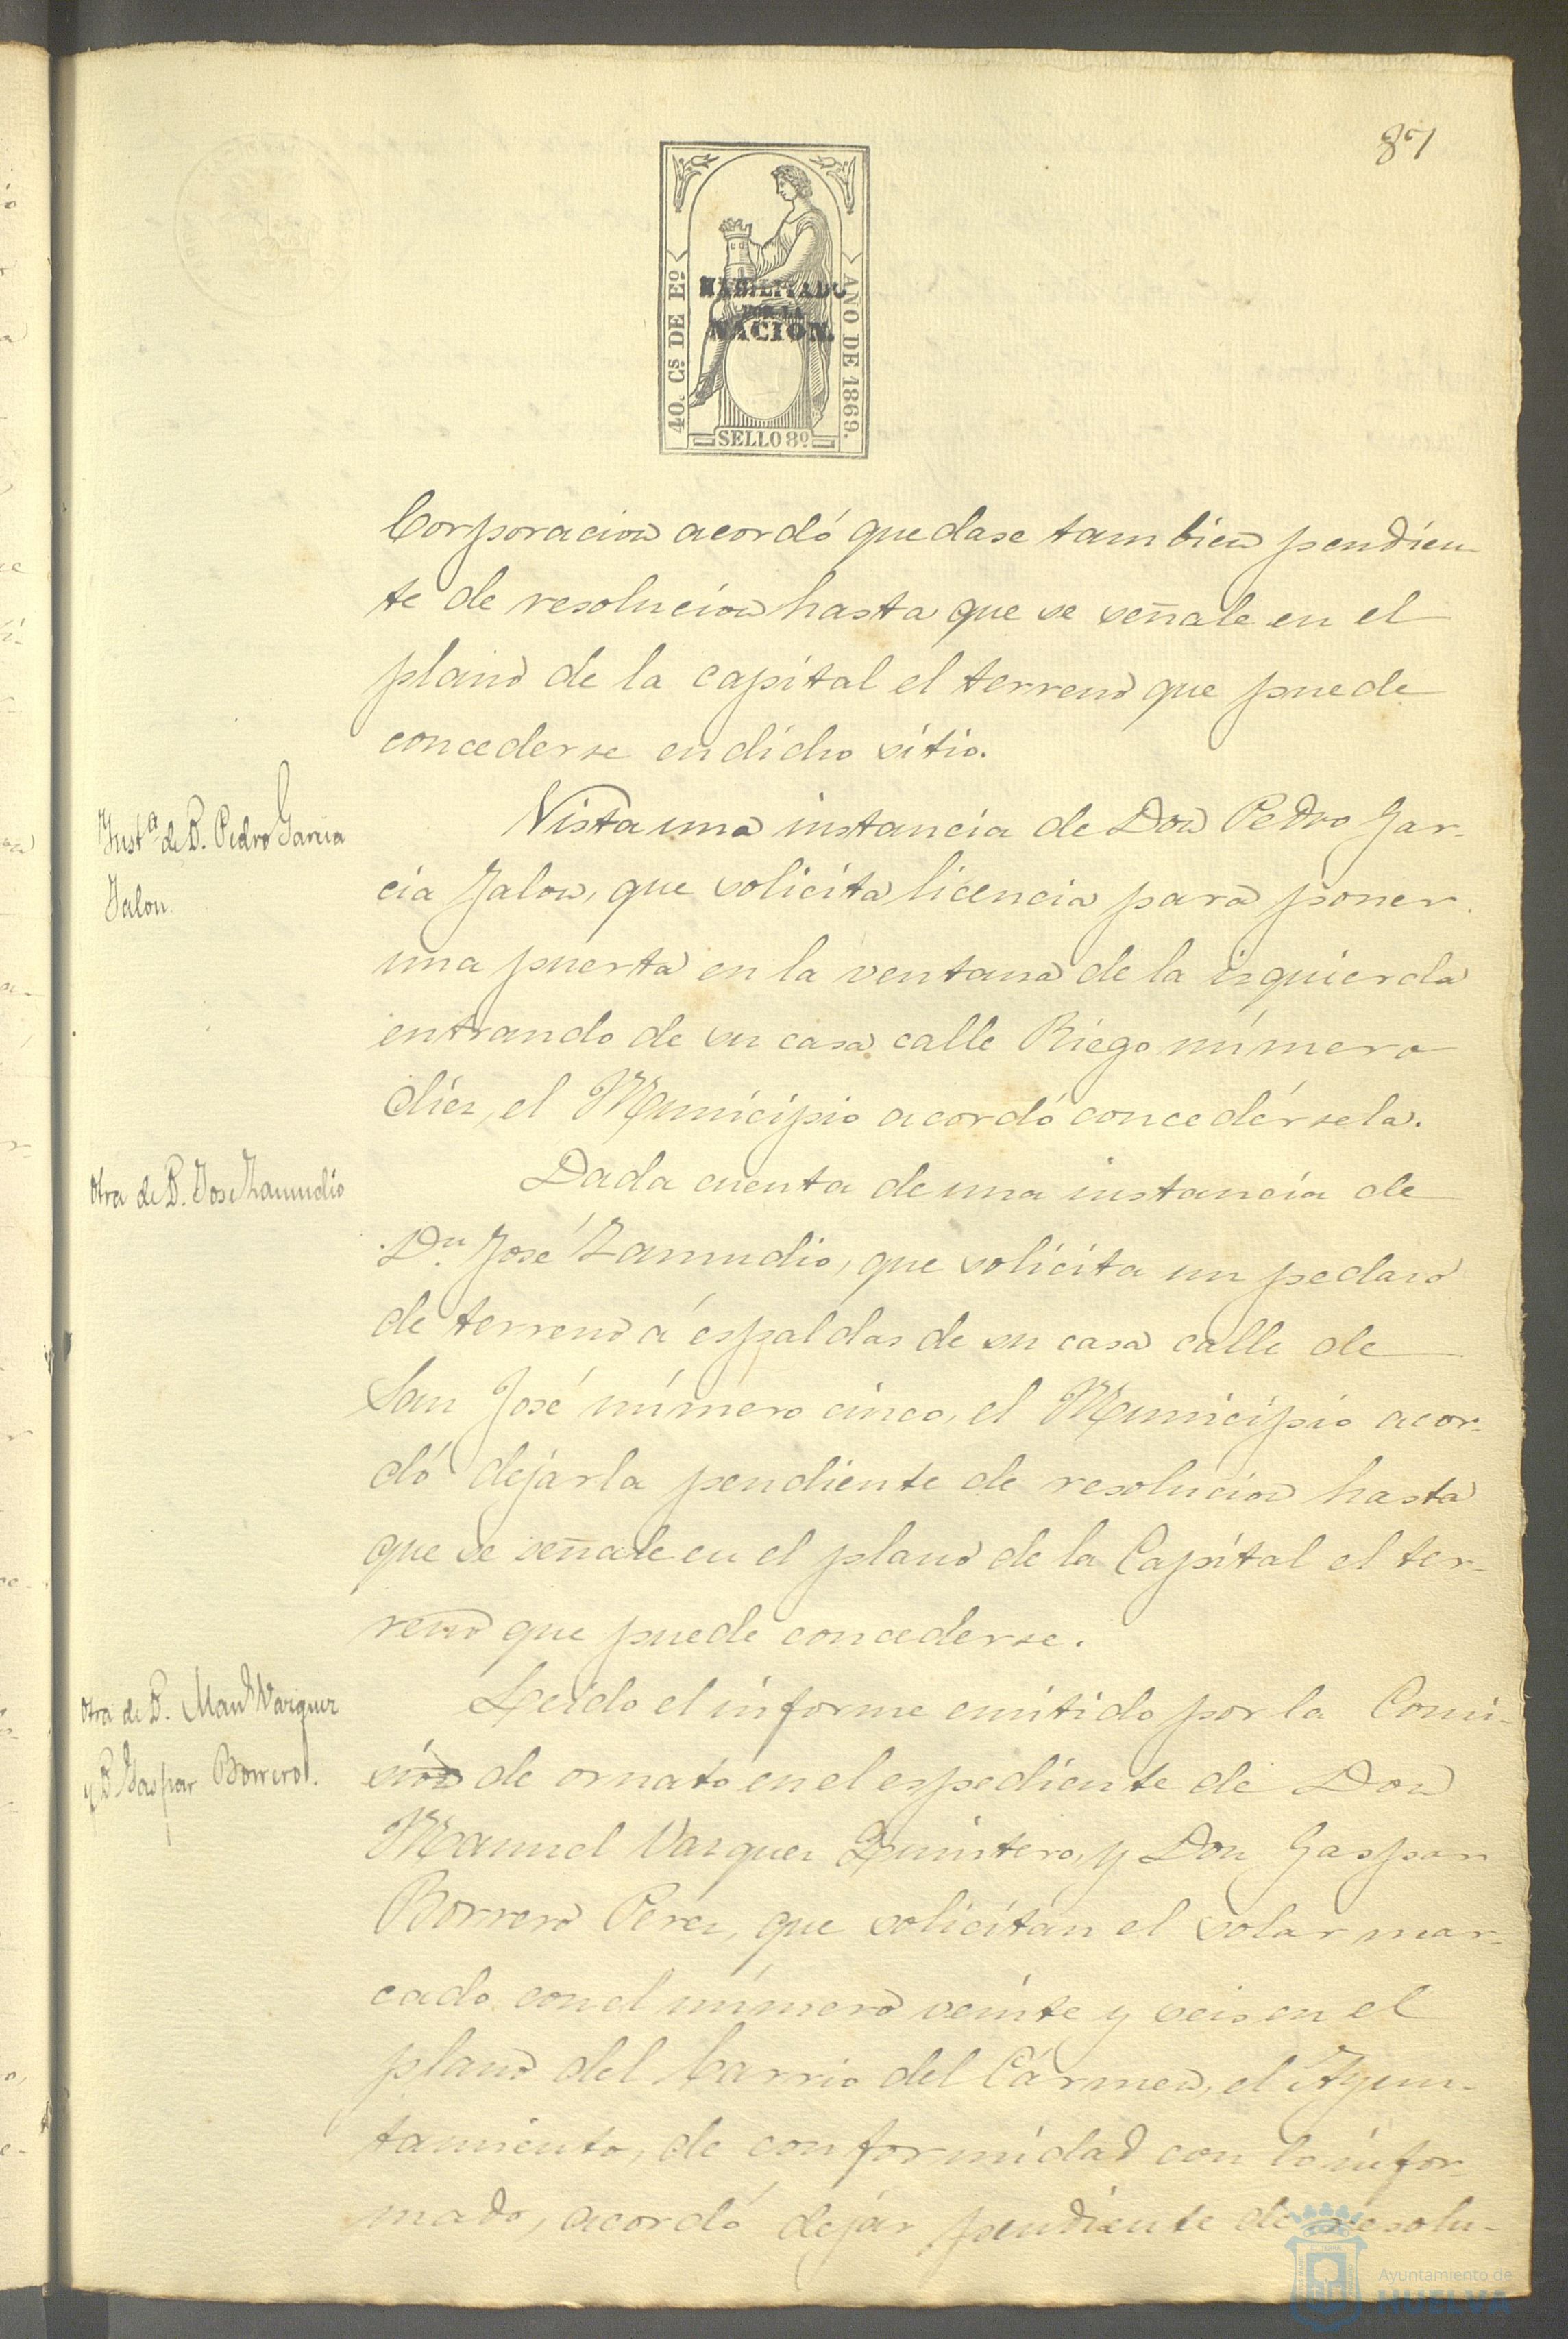 87
40. Cs DE Eo
HABILITADO
POR LA
NACION.
AÑO DE 1869.
SELLO 8o
Corporacion acordó quedase tambien pendien
te de resolucion hasta que se señale en el
plano de la capital el terreno que puede
concederse en dicho sitio.
Insta de D. Pedro Garcia
Jalon.
Vista una instancia de Don Pedro Gar-
cia Jalon, que solicita licencia para poner
una puerta en la ventana de la izquierda
entrando de su casa calle Riego número
diez, el Municipio acordó concedérsela.
Otra de D. Jose Zamudio
Dada cuenta de una instancia de
Dn. José Zamudio, que solicita un pedazo
de terreno á espaldas de su casa calle de
San José número cinco, el Municipio acor-
dó dejarla pendiente de resolucion hasta
que se señale en el plano de la Capital el ter-
reno que puede concederse.
Otra de D. Manl Vazquez
y D. Gaspar Borrero.
Leido el informe emitido por la Comi-
sion de ornato en el espediente de Don
Manuel Vazquez Quintero, y Don Gaspar
Borrero Perez, que solicitan el solar mar-
cado con el número veinte y seis en el
plano del barrio del Cármen, el Ayun-
tamiento, de conformidad con lo infor
mado, acordó dejar pendiente de resolu-
Ayuntamiento de
HUELVA